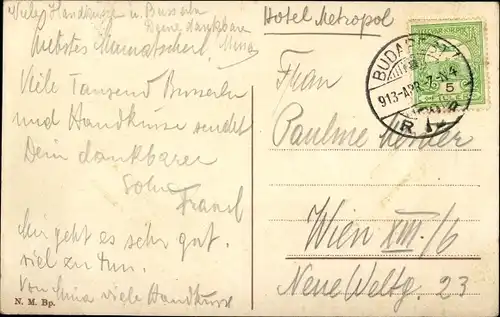 Viele Handküsse u. Busserln
Deine dankbare
Mina
Liebstes Mamatscherl,
Viele Tausend Busserln
und Handküsse sendet
Dein dankbarer
Sohn
Franzl
Mir geht es sehr gut.
viel zu tun.
Von Mina viele Handküsse
N. M. Bp.
Hotel Metropol
Frau
Pauline
Wien XIII./6
Neue Weltg. 23
BUDAPEST
913-APR-7-N4
5